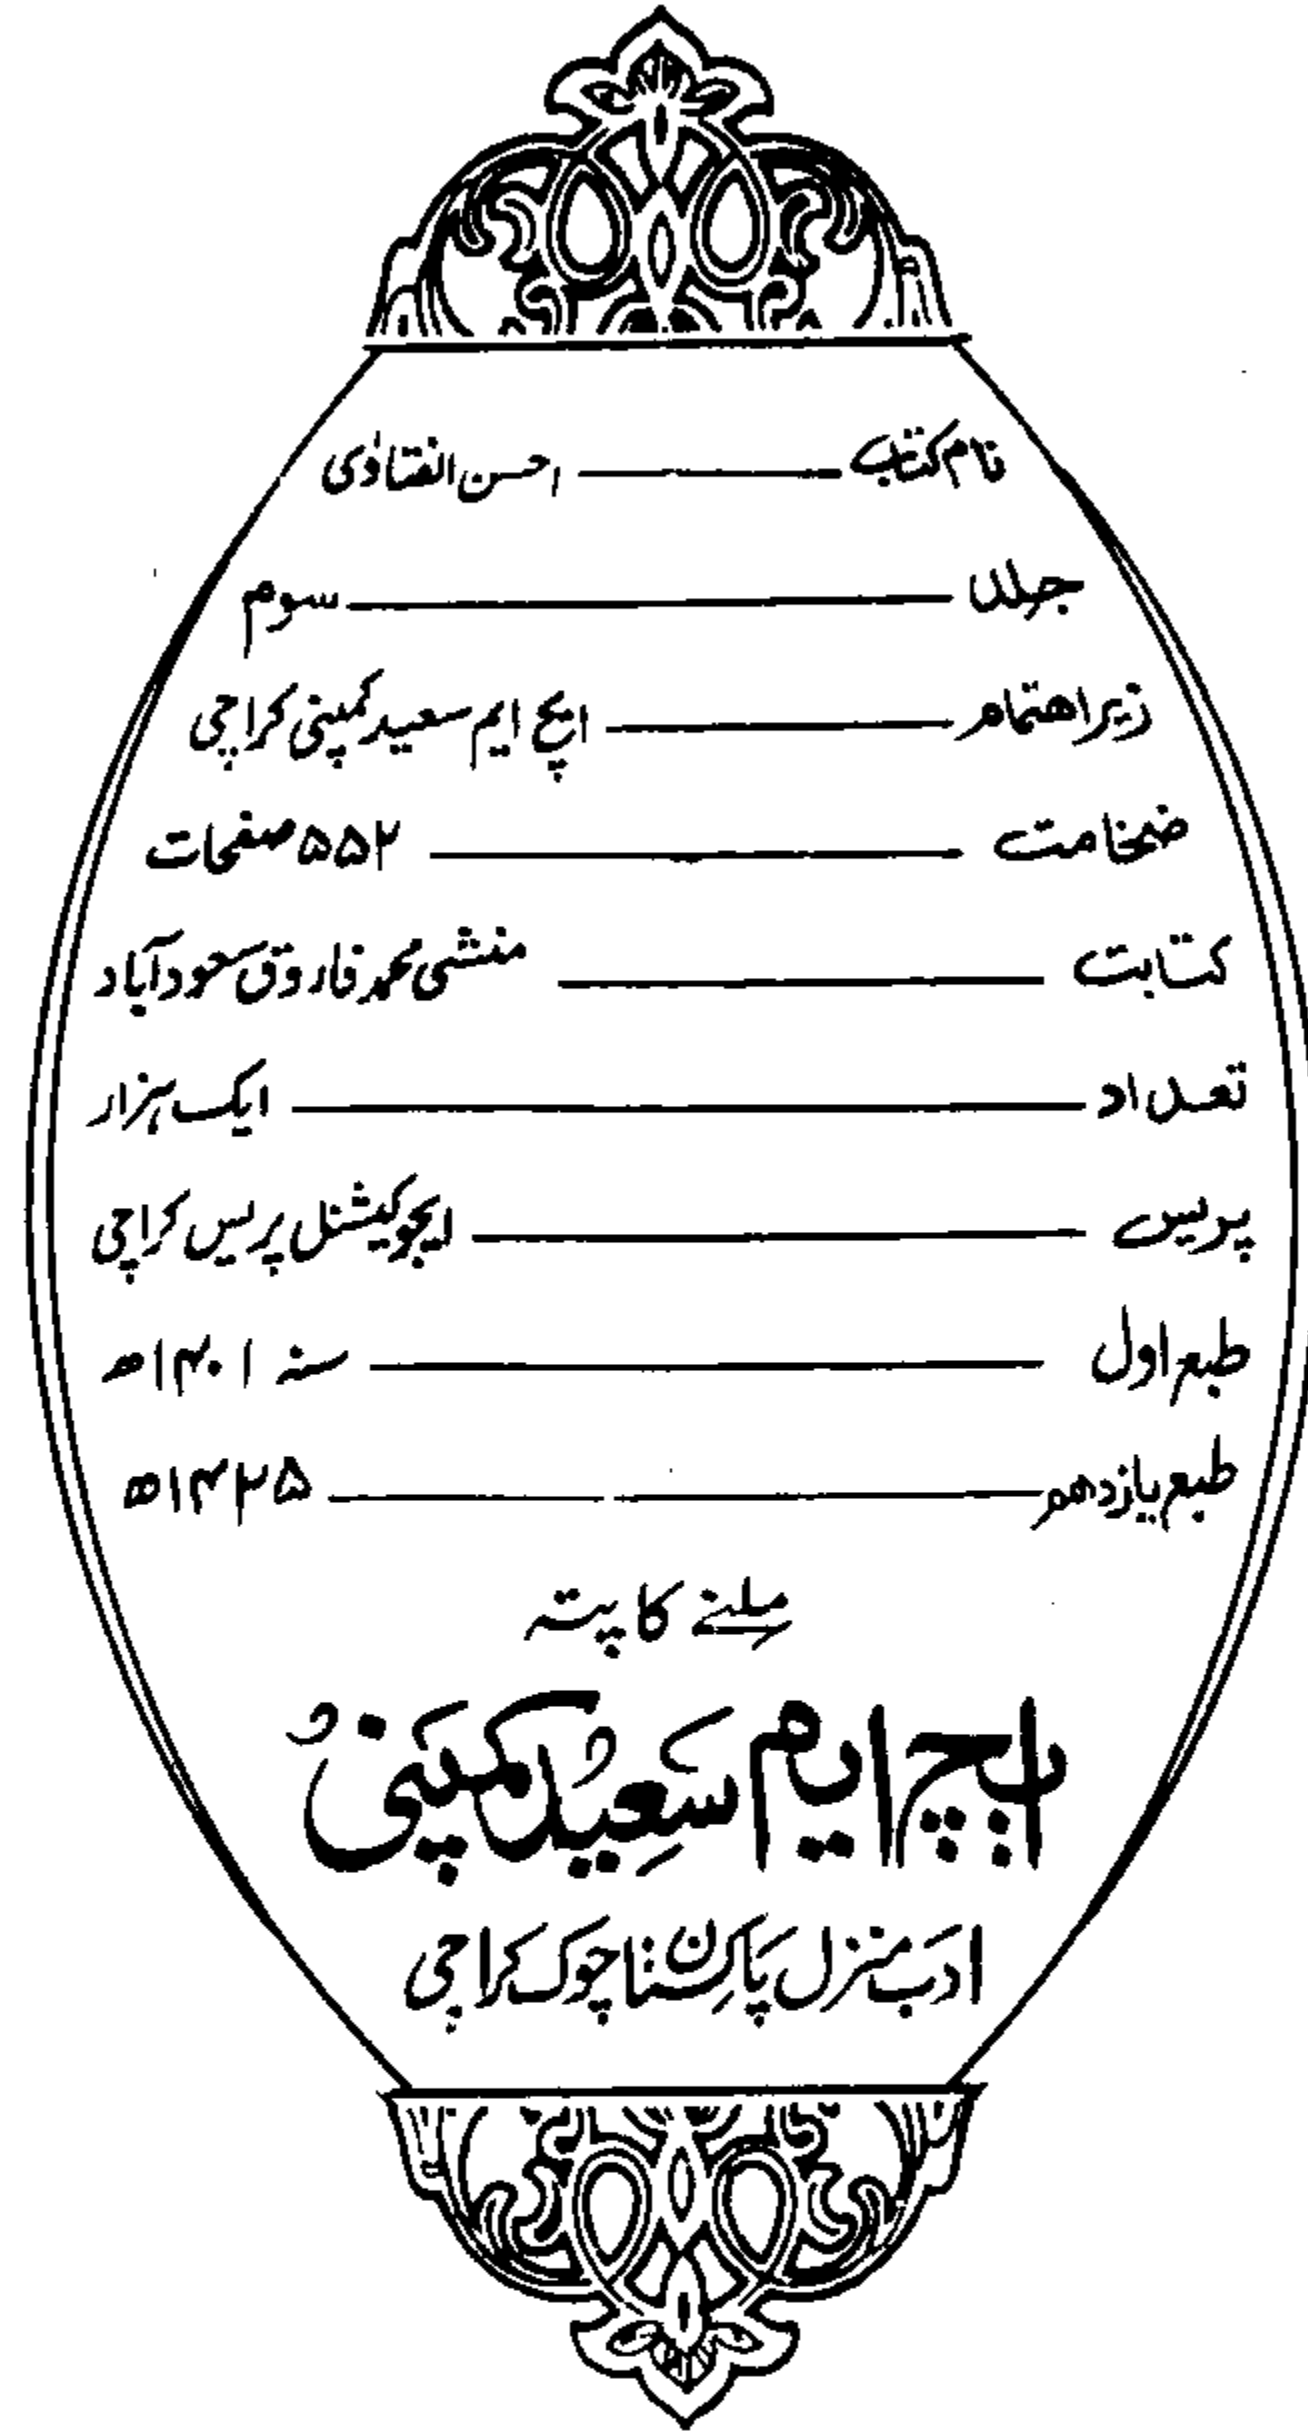 نام کتاب ـــــ احسن الفتاویٰ
جلد ـــــ سوم
زیر اهتمام ـــــ ایچ ایم سعید کمپنی کراچی
ضخامت ـــــ ۵۵۲ صفحات
کتابت ـــــ منشی محمد فاروق سعود آباد
تعداد ـــــ ایک ہزار
پریس ـــــ ایجوکیشنل پریس کراچی
طبع اول ـــــ سنہ ۱۴۰۱ھ
طبع یازدهم ـــــ ۱۴۲۵ھ
ملنے کا پتہ
ایچ ایم سعید کمپنی
ادب منزل پاکستان چوک کراچی